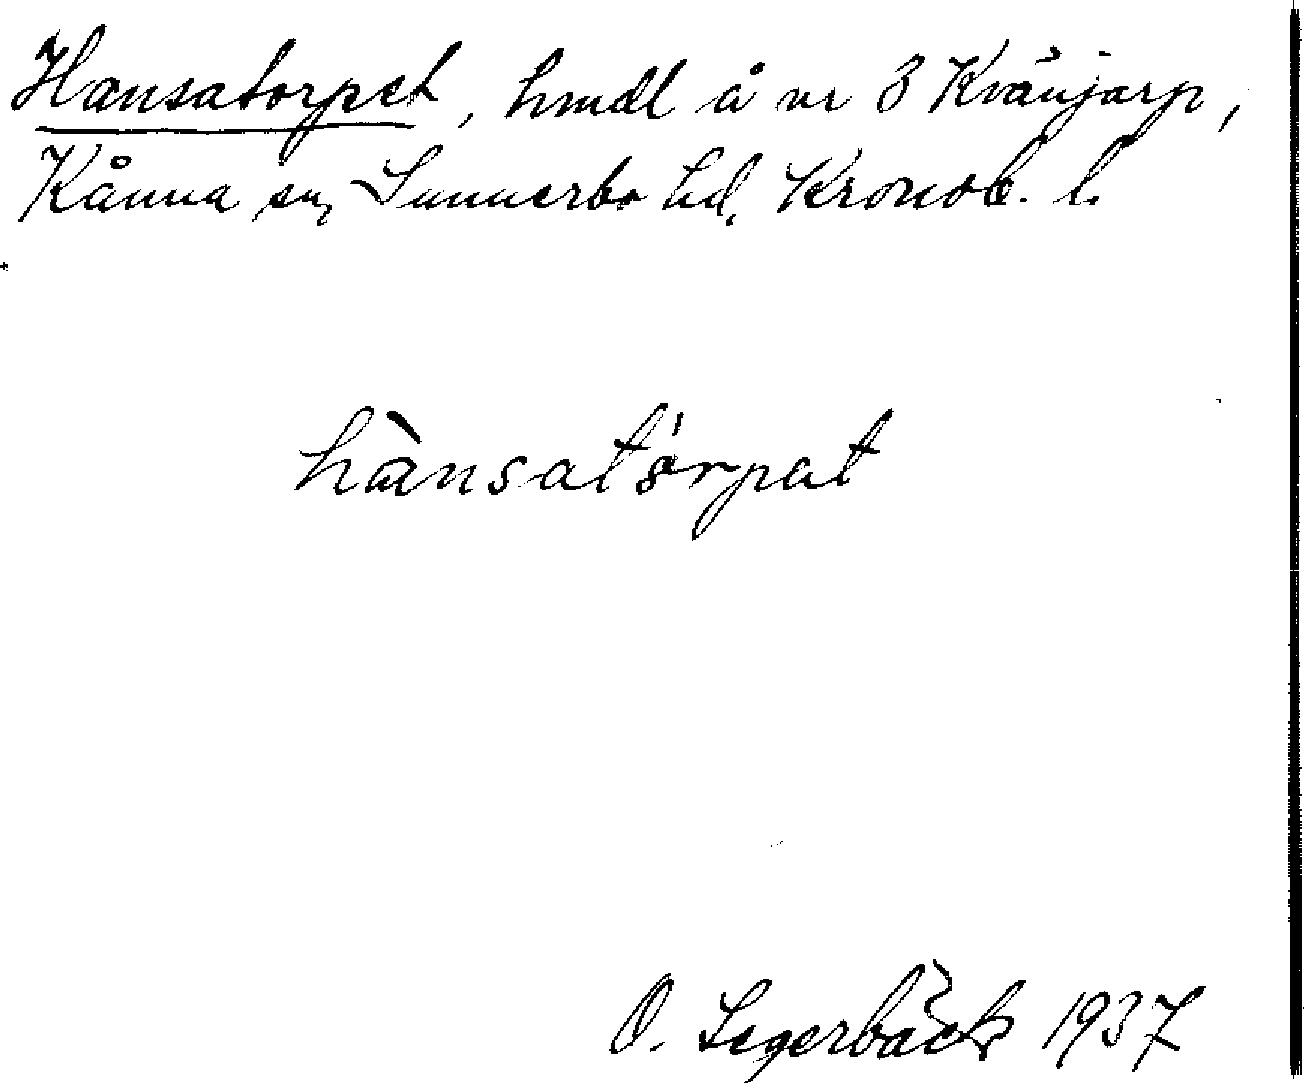 Hansatorpet, hmdl å nr 3 Kvänjarp,
Kånna sn, Sunnerbo hd, Kronob. l.
hànsatórpat
O. Segerbäck 1937